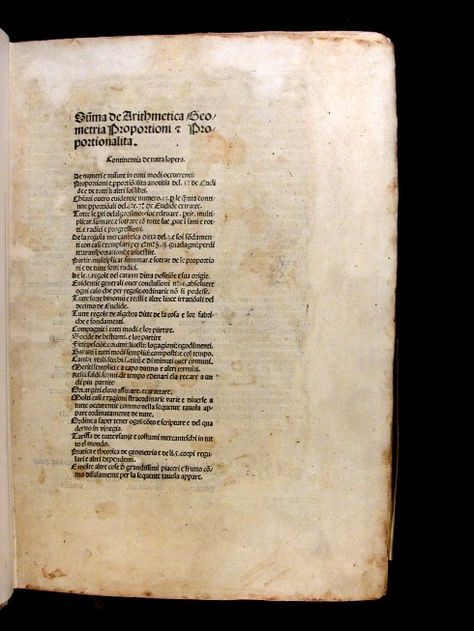 Sũma de Arithmetica Geo⸗
metria Proportioni ⁊ Pro⸗
portionalita.
Continentia de tutta lopera.
De numeri e misure in tutti modi occurrenti.
Proportioni e
de e de tutti li altri soi libri.
Chiavi overo evidentie numero
tinue del de Euclide extratte.
Tutte le pti delalgorismo: cioe relevare. ptir. multi⸗
plicar. sũmare. e sotrare cõ tutte sue in sani e rot⸗
ti. e radici e progressioni.
De la regola mercantesca ditta del .3. e soi fõdamen⸗
ti con casi exemplari per guadagni: perdi⸗
te: transportationi: e investite.
Partir. multiplicar. summar. e sotrar de le proportio
ni e de tutte sorti radici.
De le regole del catayn ditta positiõe e sua origie.
Evidentie generali over conclusioni absolvere
ogni caso che per regole ordinarie nõ si podesse.
Tutte sorte binomii e recisi e altre linee irratioali del
decimo de Euclide.
Tutte regole de algebra ditte de la cosa e lor fabri⸗
che e fondamenti.
Compagnie i tutti modi. e lor partire.
Socide de bestiami. e lor partire
Fitti: pesciõi: cottimi: livelli: logagioni: e godimenti.
Baratti i tutti modi semplici: composti: e col tempo.
Cambi reali. secchi. fittitii. e di minuti over comuni.
Meriti semplici e a capo danno e altri termini.
Resti. saldi. sconti. de tempo e denari e la recare a un
di piu partite.
Ori. argẽti. e loro affinare. e carattare.
Molti casi e ragioni straordinarie varie e diverse a
tutte occurentie commo nella sequente tavola ap⸗
pare ordinatamente de tutte.
Ordine a saper tener ogni cõto e scripture e del qua
derno in vinegia.
Tariffa de tutte usanze e costumi mercanteschi in tut
to el mondo.
Pratica e theorica de geometria e de li .5. corpi regu
lari e altri dependenti.
E molte altre cose grandissimi piaceri e frutto cõ⸗
mo diffusamente per la sequente tavola appare.